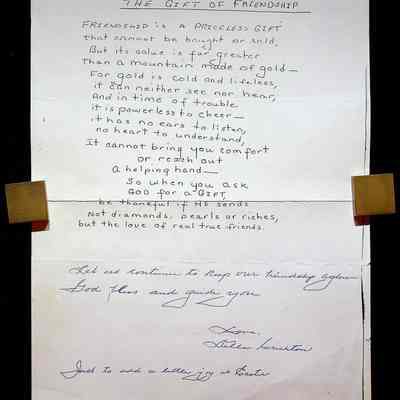 THE GIFT OF FRIENDSHIP
FRIENDSHIP is A PRICELESS GIFT
that cannot be bought or sold,
But its value is far greater
Than a mountain made of gold—
For gold is cold and lifeless,
it can neither see nor hear,
And in time of trouble
it is powerless to cheer—
it has no ears to listen,
no heart to understand,
It cannot bring you comfort
or reach out
A helping hand—
So when you ask
GOD for a GIFT,
be thankful if HE sends
Not diamonds, pearls or riches,
but the love of real true friends.
Let us continue to keep our friendship aglow
God bless and guide you
Love,
Just to add a little joy at Easter